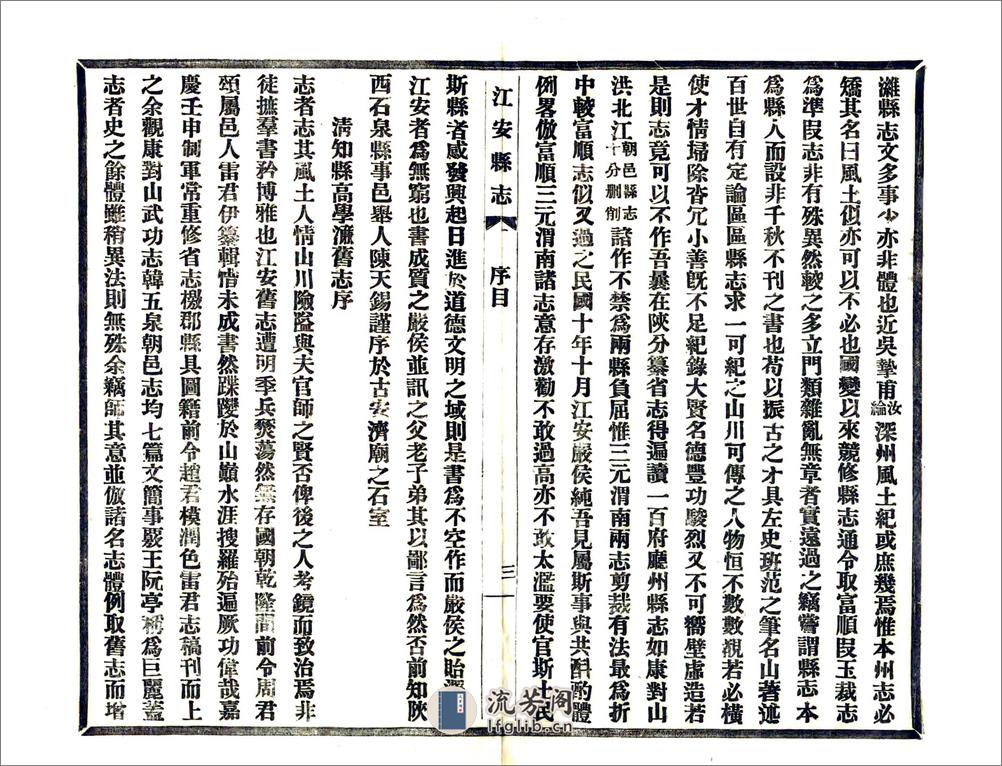 灘縣志文多事少亦非體也近吳摯甫汝綸深州風土紀或庶幾焉惟本州志必
矯其名曰風土似亦可以不必也國變以來競修縣志通令取富順段玉裁志
爲準段志非有殊異然較之多立門類雜亂無章者實遠過之竊嘗謂縣志本
爲縣人而設非千秋不刊之書也苟以振古之才具左史班范之筆名山著述
百世自有定論區區縣志求一可紀之山川可傳之人物恒不數數覯若必橫
使才情掃除沓冗小善旣不足紀錄大賢名德豐功駿烈又不可嚮壁虛造若
是則志竟可以不作吾曩在陝分纂省志得遍讀一百府廳州縣志如康對山
洪北江朝邑縣志十分刪削諸作不禁爲兩縣負屈惟三元渭南兩志剪裁有法最爲折
中較富順志似又過之民國十年十月江安嚴侯純吾見屬斯事與共斟酌體
例畧倣富順三元渭南諸志意存激勸不敢過高亦不敢太濫要使官斯土民
江安縣志 序目 三
斯縣者感發興起日進於道德文明之域則是書爲不空作而嚴侯之貽澤
江安者爲無窮也書成質之嚴侯並訊之父老子弟其以鄙言爲然否前知陝
西石泉縣事邑舉人陳天錫謹序於古安濟廟之石室
清知縣高學濂舊志序
志者志其風土人情山川險隘與夫官師之賢否俾後之人考鏡而致治焉非
徒摭羣書矜博雅也江安舊志遭明季兵燹蕩然無存國朝乾隆間前令周君
頌屬邑人雷君伊纂輯惜未成書然踩躞於山巔水涯搜羅殆遍厥功偉哉嘉
慶壬申制軍常重修省志檄郡縣具圖籍前令趙君模潤色雷君志稿刊而上
之余觀康對山武功志韓五泉朝邑志均七篇文簡事覈王阮亭稱爲巨麗蓋
志者史之餘體雖稍異法則無殊余竊師其意並倣諸名志體例取舊志而增
流芳阁
lfglib.cn